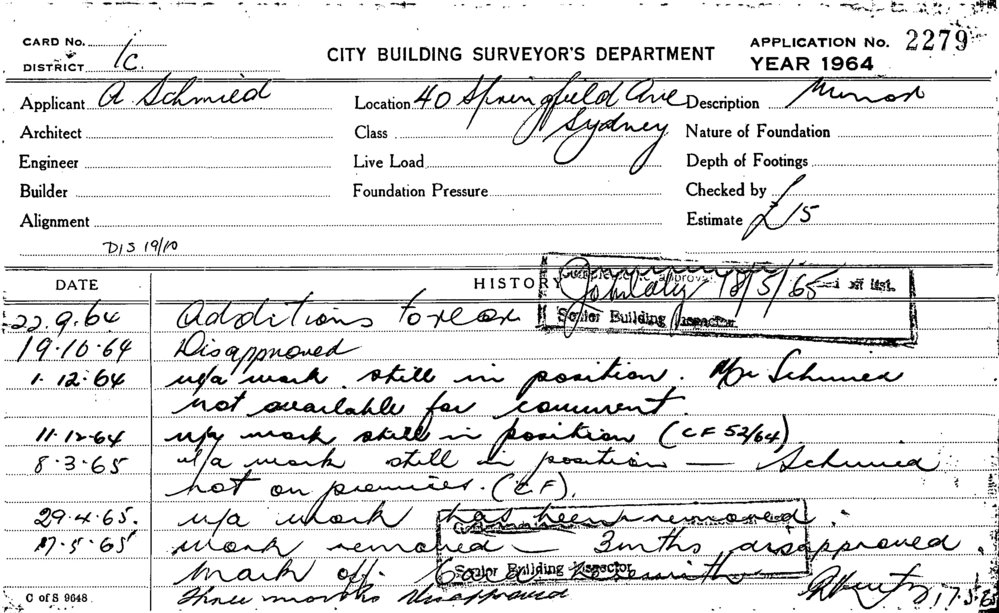 CARD No.
DISTRICT 1C.
CITY BUILDING SURVEYOR'S DEPARTMENT
APPLICATION No. 2279
YEAR 1964
Applicant A Schmied
Location 40 Springfield Ave
Sydney
Description Minor
Architect
Class
Nature of Foundation
Engineer
Live Load
Depth of Footings
Builder
Foundation Pressure
Checked by
Alignment
Estimate £15
DIS 19/10
DATE
HISTORY
approv
18/5/65
off list.
Senior Building Inspector
22.9.64 Additions to rear
19.10.64 Disapproved
1.12.64 u/a work still in position. Mr Schmied
not available for comment.
11.12.64 u/a work still in position (CF 52/64)
8.3.65 u/a work still in position — Schmied
not on premises. (CF).
29.4.65. u/a work has been removed.
17.5.65 Work removed — 3mths disapproved.
Mark off. Card herewith
Senior Building Inspector
17.5.65
Three months disapproved
C of S 9648